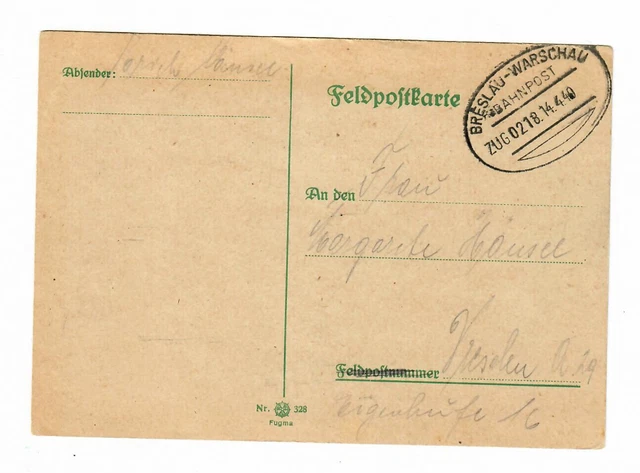 Absender: Hänsel
Feldpostkarte
BRESLAU-WARSCHAU
BAHNPOST
ZUG 0218.14.4.40
An den Frau
Margarete Hänsel
Feldpostnummer Dresden A 29
16
Nr. 328
Fugma